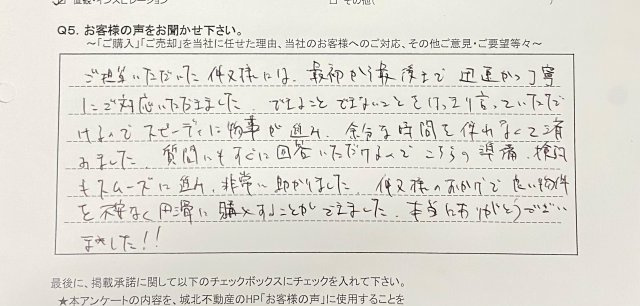 直感・インスピレーション □ その他(
Q5. お客様の声をお聞かせ下さい。
～「ご購入」「ご売却」を当社に任せた理由、当社のお客様へのご対応、その他ご意見・ご要望等々～
ご担当いただいた 様には、最初から最後まで 迅速かつ丁寧
にご対応いただきました。できること できないことを はっきり言っていただ
けるので スピーディに物事が進み、余分な時間を 使わなくて済
みました。質問にもすぐに回答いただけるので こちらの準備、検討
もスムーズに進み、非常に助かりました。 様のおかげで 良い物件
を不安なく円滑に購入することができました。本当にありがとうござい
ました!!
最後に、掲載承諾に関して以下のチェックボックスにチェックを入れて下さい。
★本アンケートの内容を、城北不動産のHP「お客様の声」に使用することを